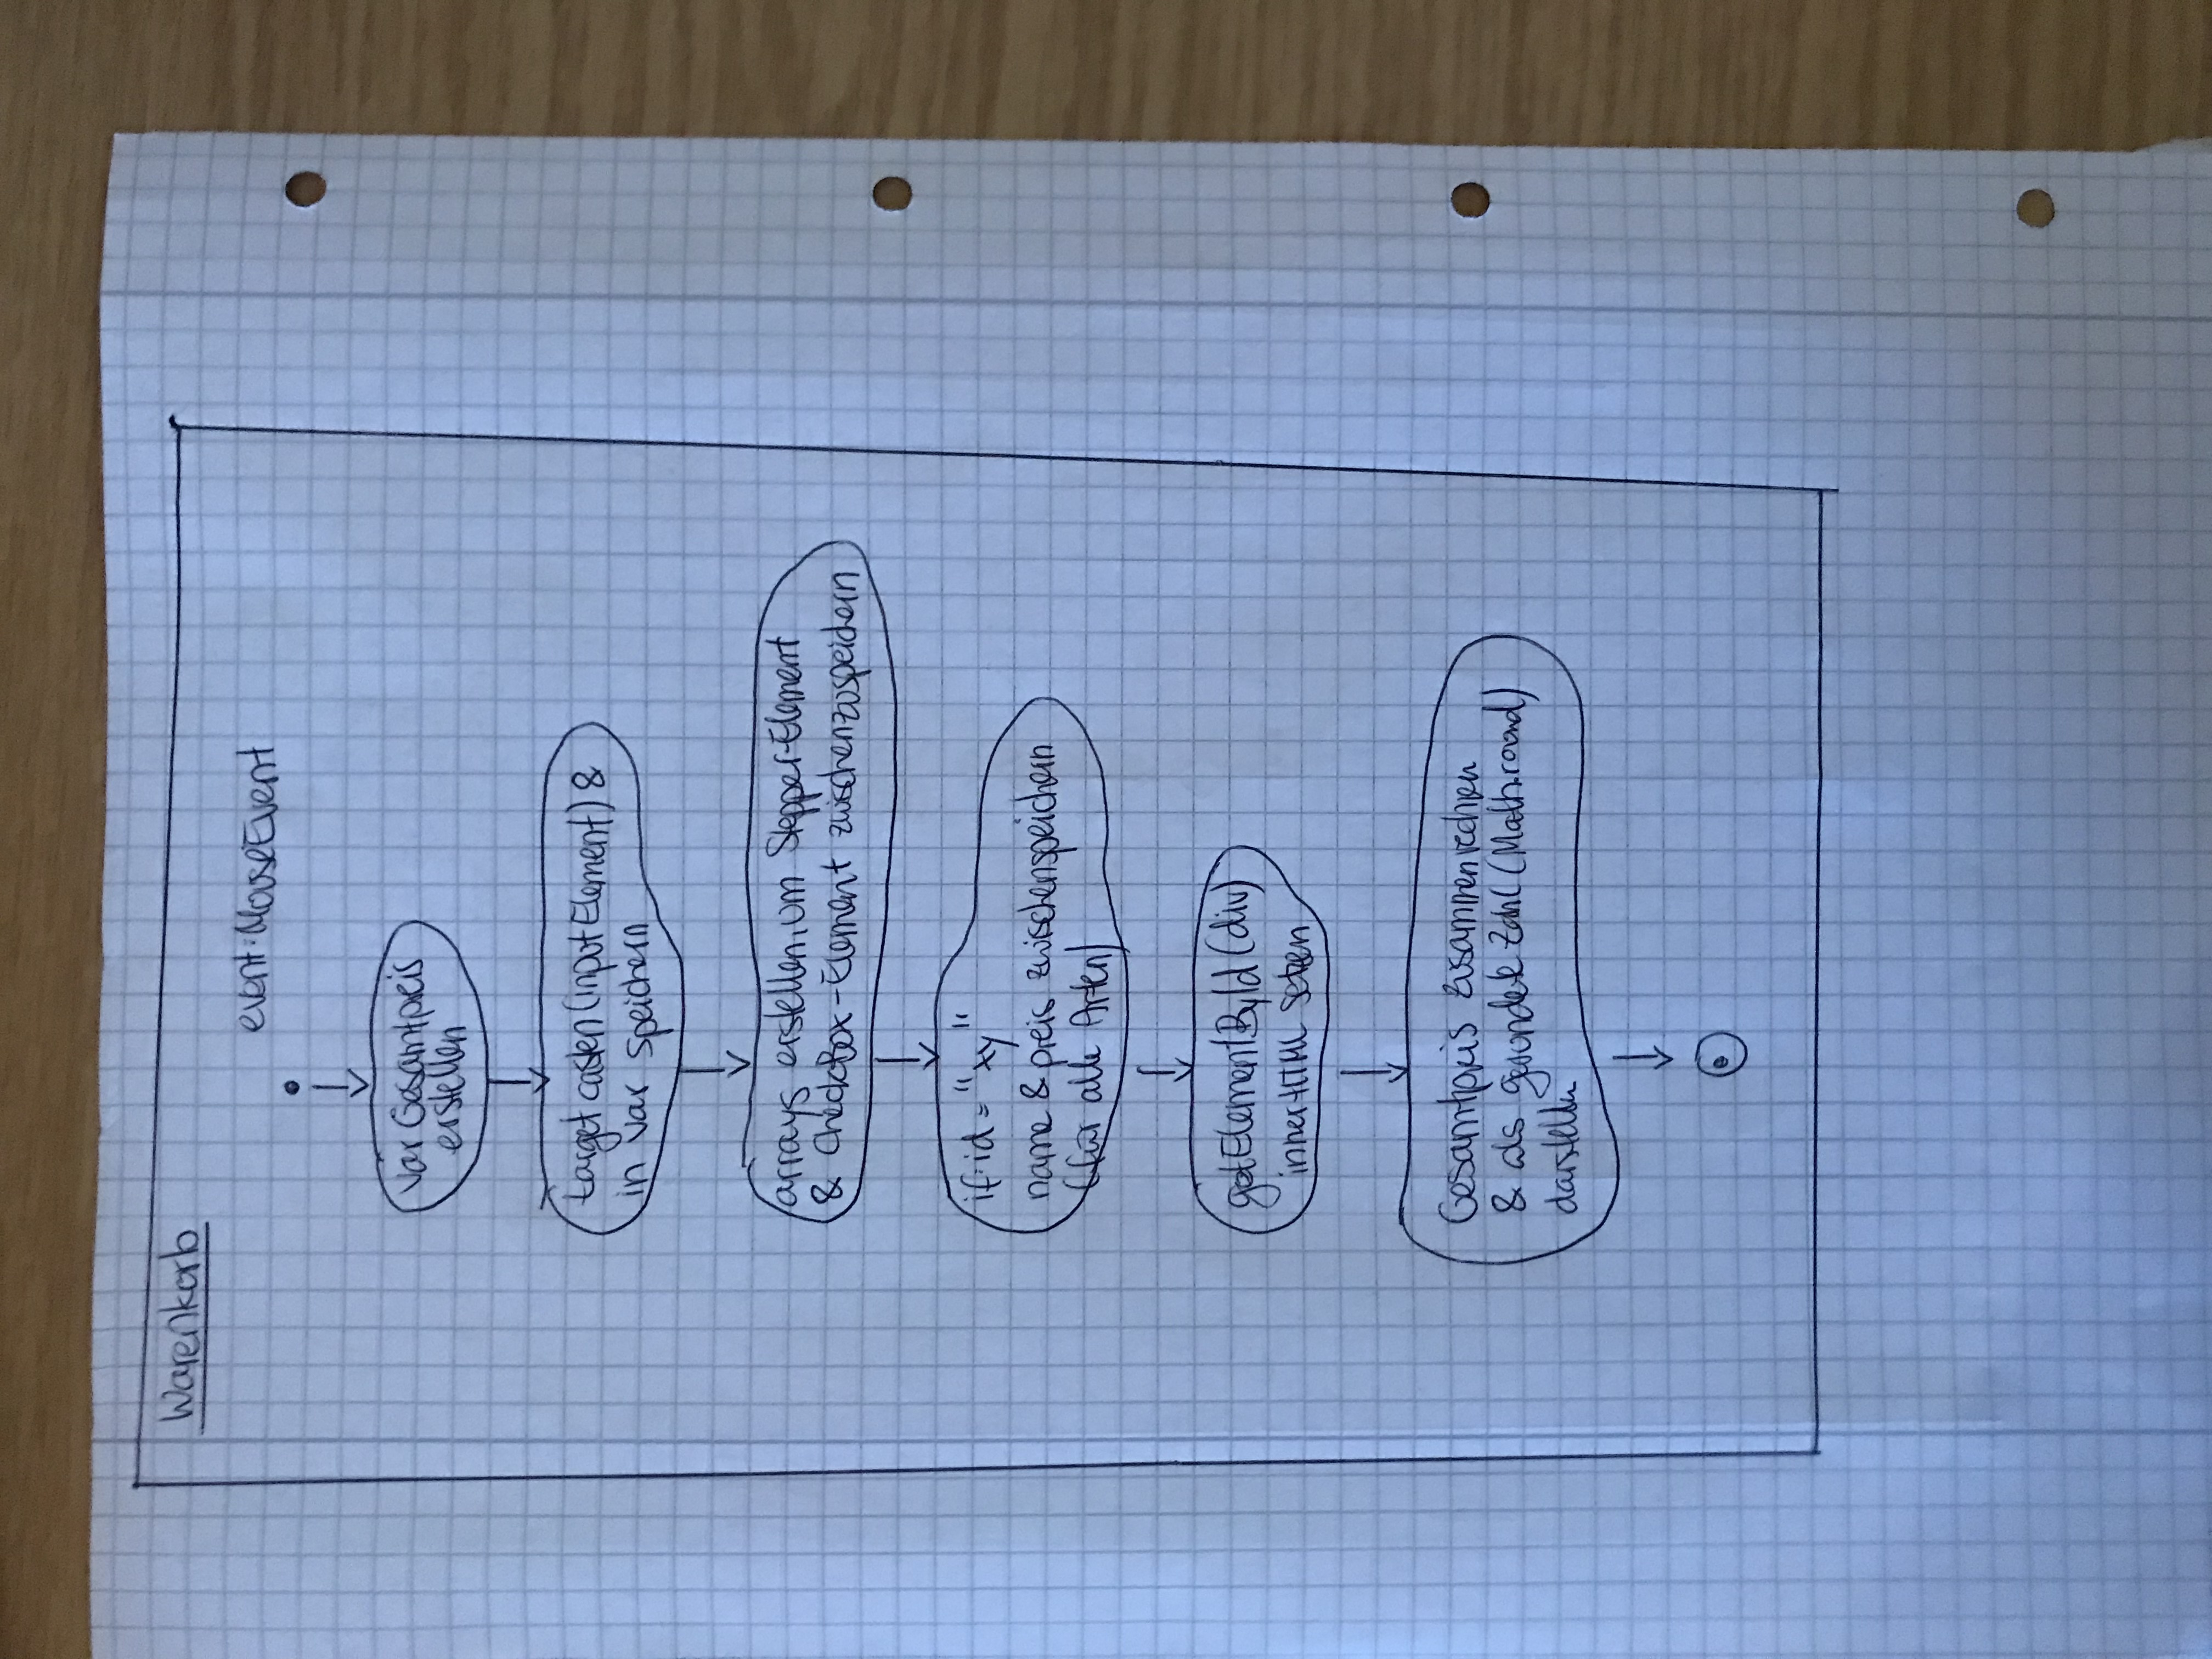 Warenkorb
event: MouseEvent
var Gesamtpreis
erstellen
target casten (input Element) &
in var speichern
arrays erstellen, um Stepper-Element
& CheckBox-Element zwischenzuspeichern
if id = "xy"
name & preis zwischenspeichern
(für alle Arten)
getElementById (div)
innerHTML setzen
Gesamtpreis zusammenrechnen
& als gerundete Zahl (Math.round)
darstellen